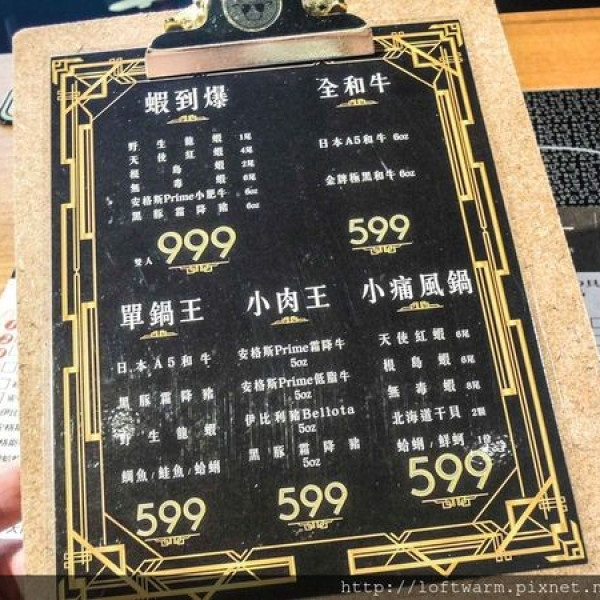 蝦到爆
野生龍蝦 1尾
天使紅蝦 4尾
根島蝦 2尾
無毒蝦 6尾
安格斯Prime小肥牛 6oz
黑豚霜降豬 6oz
雙人 999
全和牛
日本A5和牛 6oz
金牌極黑和牛 6oz
599
單鍋王
日本A5和牛
黑豚霜降豬
野生龍蝦
鯛魚/鮭魚/蛤蜊
599
小肉王
安格斯Prime霜降牛
5oz
安格斯Prime低脂牛
5oz
伊比利豬Bellota
5oz
黑豚霜降豬
5oz
599
小痛風鍋
天使紅蝦 6尾
根島蝦 6尾
無毒蝦 8尾
北海道干貝 2顆
蛤蜊/鮮蚵
599
http://loftwarm.pixnet.n